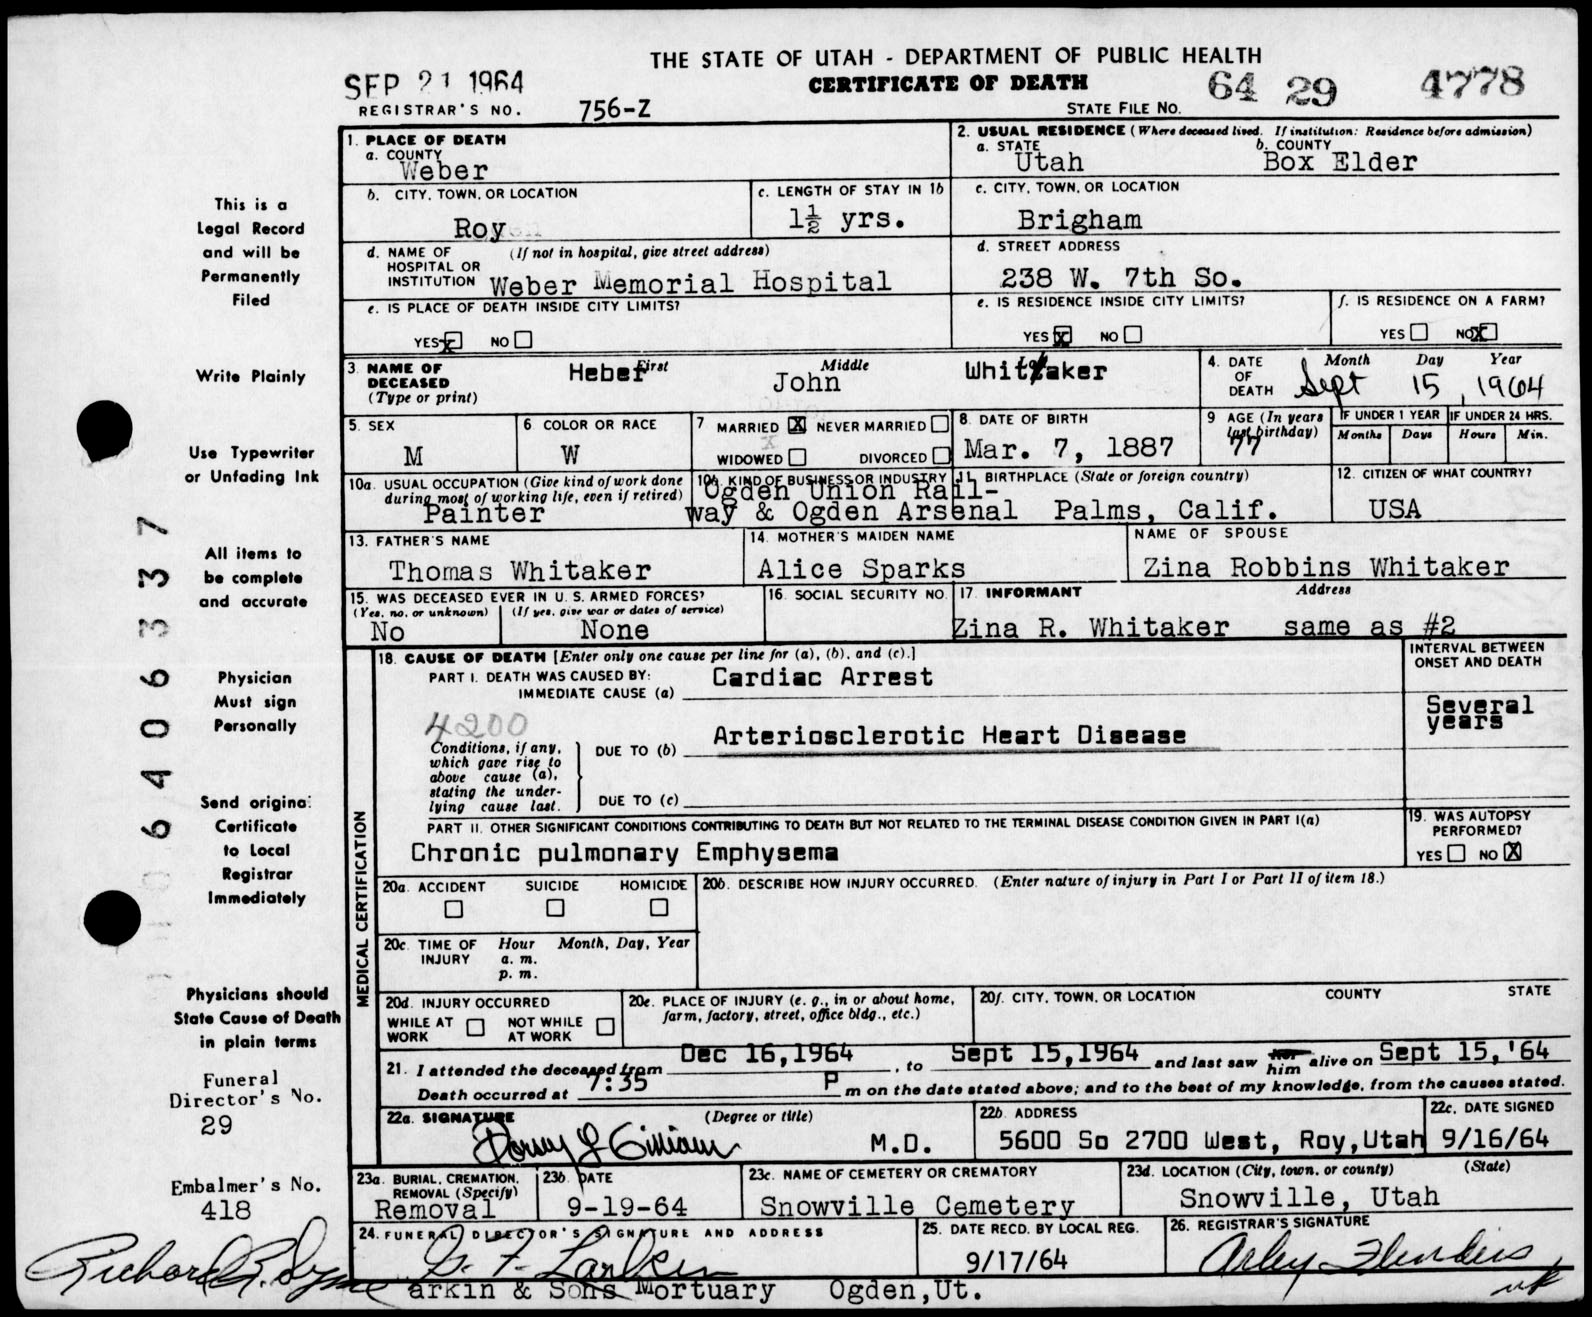 THE STATE OF UTAH - DEPARTMENT OF PUBLIC HEALTH
CERTIFICATE OF DEATH
SEP 21 1964
REGISTRAR'S NO. 756-Z
STATE FILE NO. 64 29 4778
1. PLACE OF DEATH
a. COUNTY
Weber
2. USUAL RESIDENCE (Where deceased lived. If institution: Residence before admission)
a. STATE b. COUNTY
Utah Box Elder
b. CITY, TOWN, OR LOCATION
Roy
c. LENGTH OF STAY IN 1b
1½ yrs.
c. CITY, TOWN, OR LOCATION
Brigham
d. NAME OF HOSPITAL OR INSTITUTION (If not in hospital, give street address)
Weber Memorial Hospital
d. STREET ADDRESS
238 W. 7th So.
e. IS PLACE OF DEATH INSIDE CITY LIMITS?
YES X NO
e. IS RESIDENCE INSIDE CITY LIMITS?
YES X NO
f. IS RESIDENCE ON A FARM?
YES NO X
3. NAME OF DECEASED (Type or print)
First Middle Last
Heber John Whitaker
4. DATE OF DEATH Month Day Year
Sept 15, 1964
5. SEX
M
6. COLOR OR RACE
W
7 MARRIED X NEVER MARRIED
WIDOWED DIVORCED
8. DATE OF BIRTH
Mar. 7, 1887
9 AGE (In years last birthday)
77
IF UNDER 1 YEAR
Months Days
IF UNDER 24 HRS.
Hours Min.
10a. USUAL OCCUPATION (Give kind of work done during most of working life, even if retired)
Painter
10b. KIND OF BUSINESS OR INDUSTRY
Ogden Union Rail-
way & Ogden Arsenal
11. BIRTHPLACE (State or foreign country)
Palms, Calif.
12. CITIZEN OF WHAT COUNTRY?
USA
13. FATHER'S NAME
Thomas Whitaker
14. MOTHER'S MAIDEN NAME
Alice Sparks
NAME OF SPOUSE
Zina Robbins Whitaker
15. WAS DECEASED EVER IN U. S. ARMED FORCES?
(Yes, no, or unknown) (If yes, give war or dates of service)
No None
16. SOCIAL SECURITY NO.
17. INFORMANT Address
Zina R. Whitaker same as #2
MEDICAL CERTIFICATION
18. CAUSE OF DEATH [Enter only one cause per line for (a), (b), and (c).]
PART I. DEATH WAS CAUSED BY:
IMMEDIATE CAUSE (a) Cardiac Arrest
INTERVAL BETWEEN ONSET AND DEATH
Several years
4200
Conditions, if any, which gave rise to above cause (a), stating the underlying cause last.
DUE TO (b) Arteriosclerotic Heart Disease
DUE TO (c)
PART II. OTHER SIGNIFICANT CONDITIONS CONTRIBUTING TO DEATH BUT NOT RELATED TO THE TERMINAL DISEASE CONDITION GIVEN IN PART I(a)
Chronic pulmonary Emphysema
19. WAS AUTOPSY PERFORMED?
YES NO X
20a. ACCIDENT SUICIDE HOMICIDE
20b. DESCRIBE HOW INJURY OCCURRED. (Enter nature of injury in Part I or Part II of item 18.)
20c. TIME OF INJURY Hour Month, Day, Year
a. m.
p. m.
20d. INJURY OCCURRED
WHILE AT WORK NOT WHILE AT WORK
20e. PLACE OF INJURY (e. g., in or about home, farm, factory, street, office bldg., etc.)
20f. CITY, TOWN, OR LOCATION COUNTY STATE
21. I attended the deceased from Dec 16,1964, to Sept 15,1964 and last saw him alive on Sept 15,'64
Death occurred at 7:35 P m on the date stated above; and to the best of my knowledge, from the causes stated.
22a. SIGNATURE (Degree or title)
M.D.
22b. ADDRESS
5600 So 2700 West, Roy,Utah
22c. DATE SIGNED
9/16/64
23a. BURIAL, CREMATION, REMOVAL (Specify)
Removal
23b. DATE
9-19-64
23c. NAME OF CEMETERY OR CREMATORY
Snowville Cemetery
23d. LOCATION (City, town, or county) (State)
Snowville, Utah
24. FUNERAL DIRECTOR'S SIGNATURE AND ADDRESS
G. F. Larkin
arkin & Sons Mortuary Ogden,Ut.
25. DATE RECD. BY LOCAL REG.
9/17/64
26. REGISTRAR'S SIGNATURE
This is a
Legal Record
and will be
Permanently
Filed
Write Plainly
Use Typewriter
or Unfading Ink
All items to
be complete
and accurate
Physician
Must sign
Personally
Send original
Certificate
to Local
Registrar
Immediately
Physicians should
State Cause of Death
in plain terms
Funeral
Director's No.
29
Embalmer's No.
418